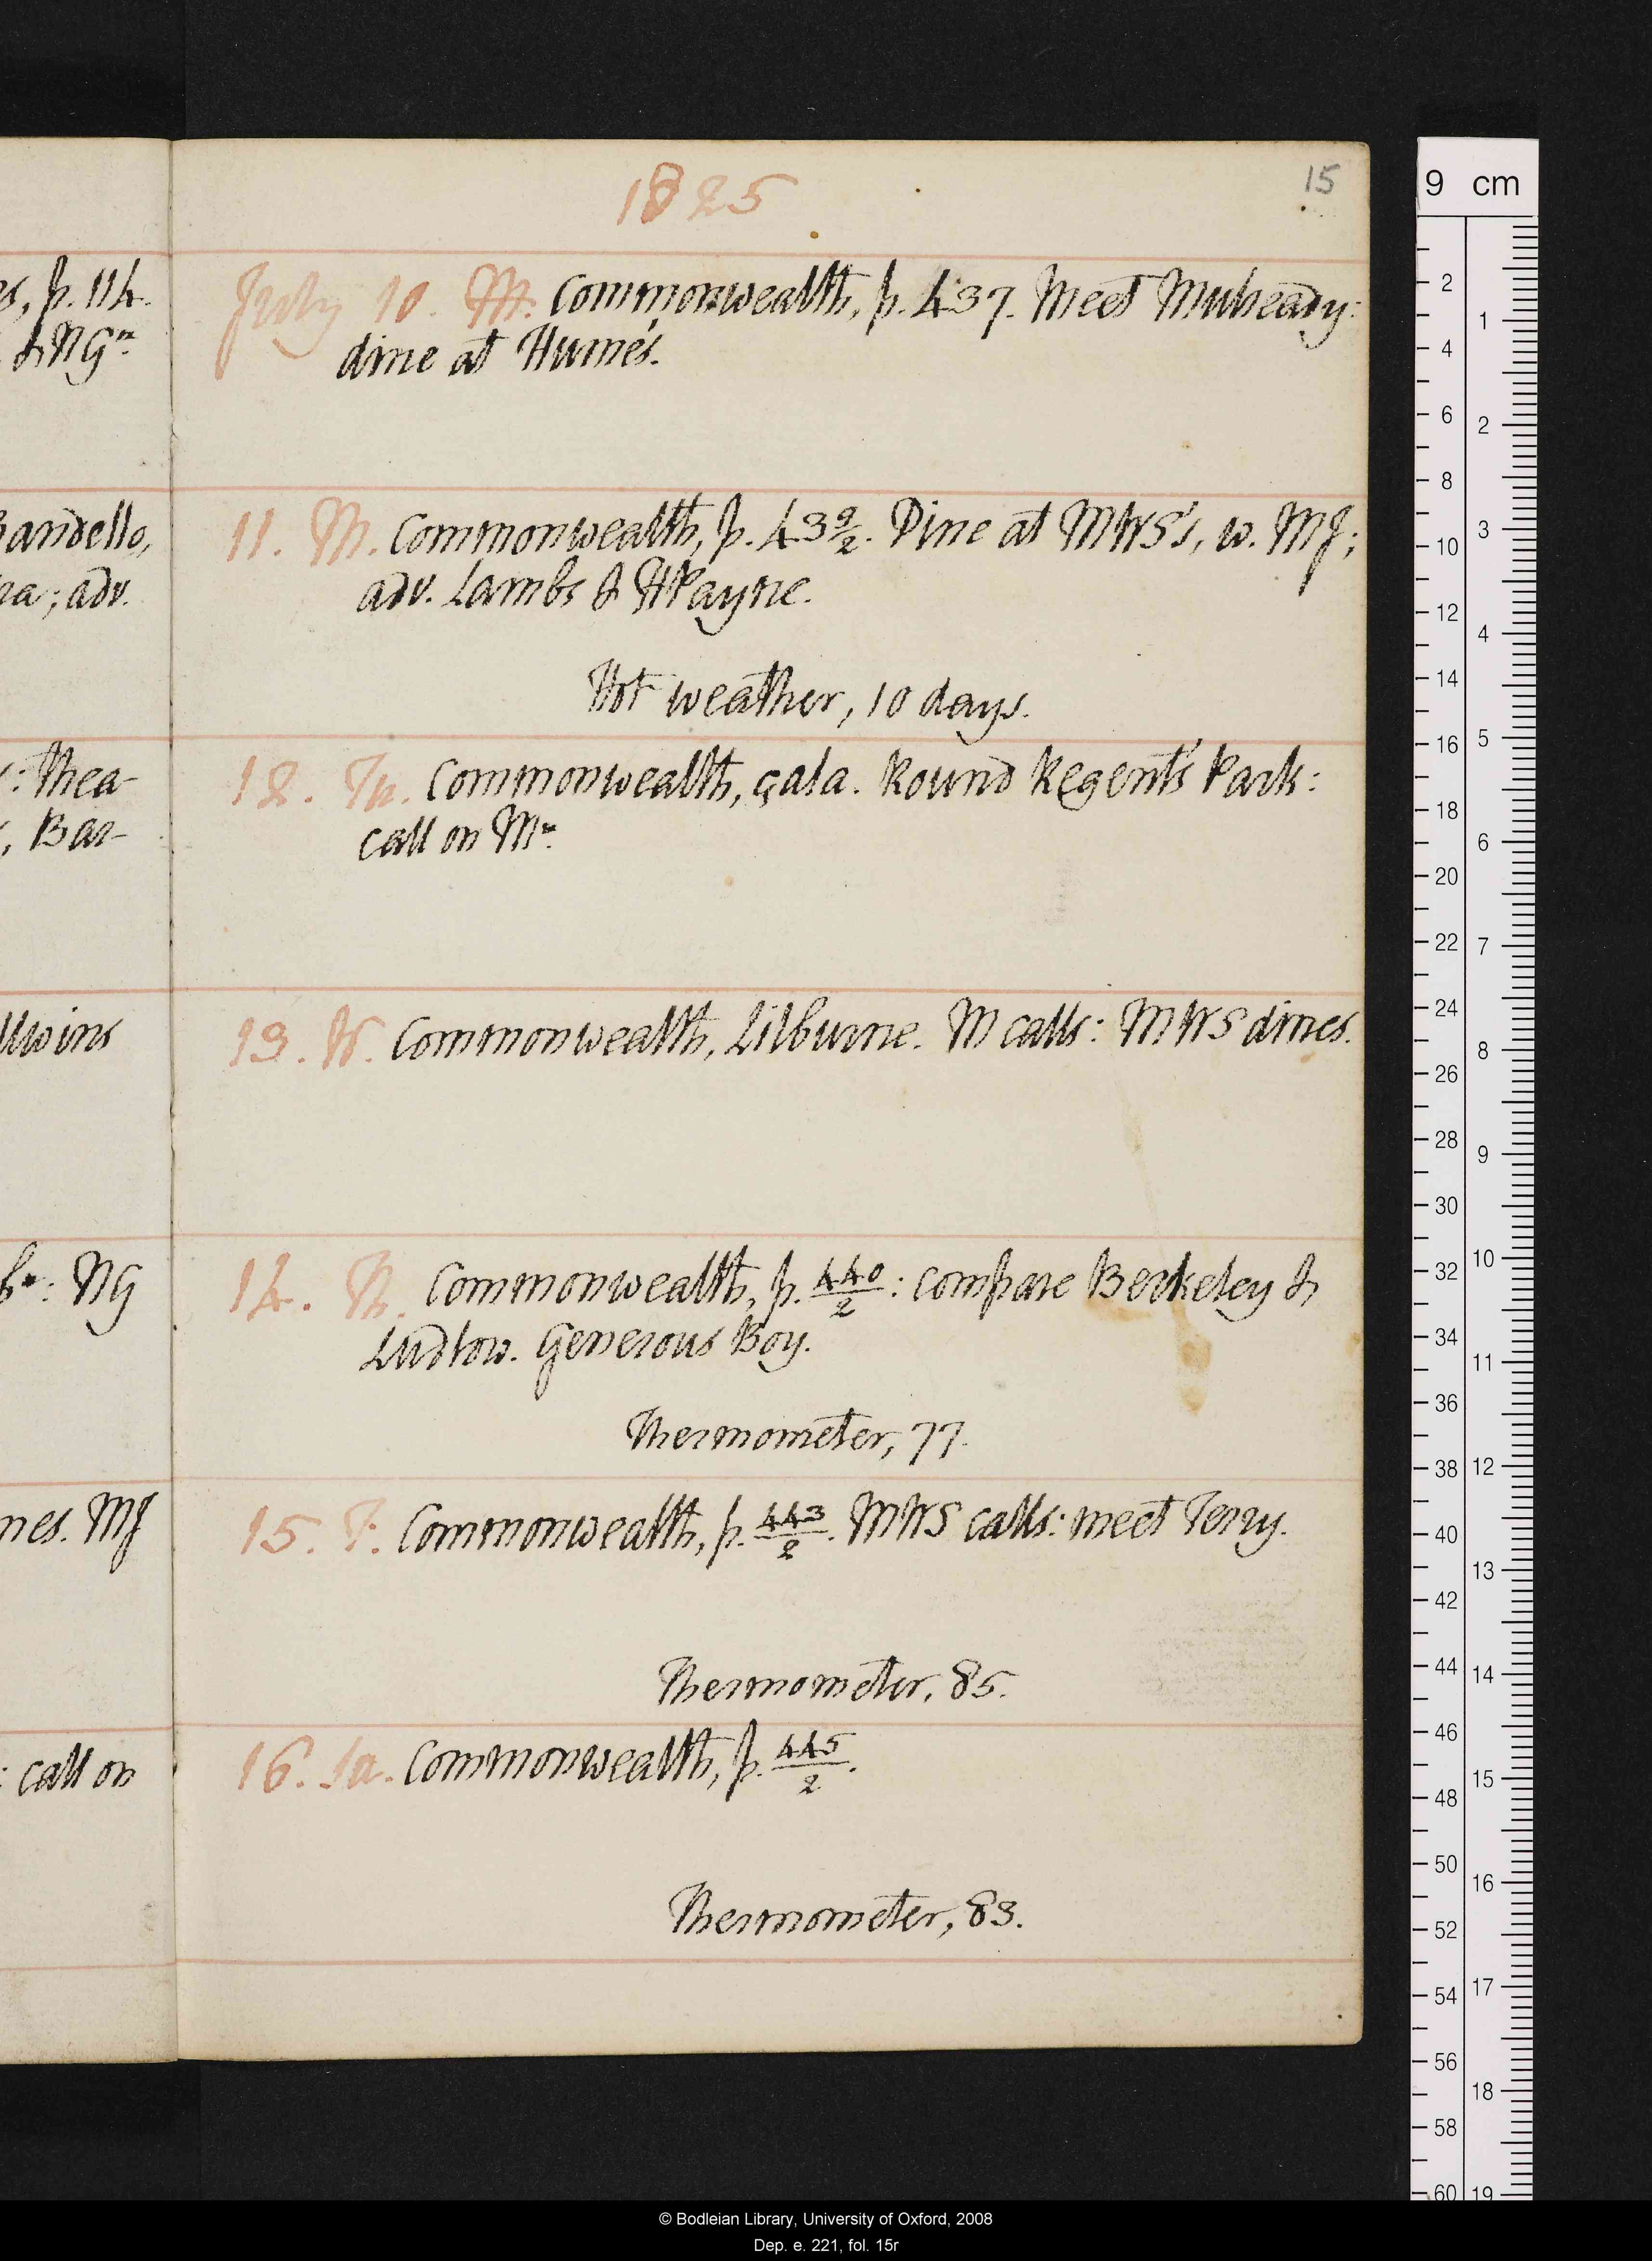 1825
15
s, p. 114.
& NGn
July 10. Su. Commonwealth, p. 437. Meet Mulready:
dine at Hume's.
Bandello,
na; adv.
11. M. Commonwealth, p. 439/2. Dine at MWS's, w. MJ;
adv. Lambs & HPayne.
Hot weather, 10 days.
: Thea-
, Bar-
12. Tu. Commonwealth, çala. Round Regent's Park:
call on Mn.
Uwins
13. W. Commonwealth, Lilburne. M calls: MWS dines.
: NG
14. Th. Commonwealth, p. 440/2: compare Berkeley &
Ludlow. Generous Boy.
Thermometer, 77.
nes. MJ
15. F. Commonwealth, p. 443/2. MWS calls: meet Terry.
Thermometer, 85.
: call on
16. Sa. Commonwealth, p. 445/2.
Thermometer, 83.
9 cm
2 4 6 8 10 12 14 16 18 20 22 24 26 28 30 32 34 36 38 40 42 44 46 48 50 52 54 56 58 60
1 2 3 4 5 6 7 8 9 10 11 12 13 14 15 16 17 18 19
© Bodleian Library, University of Oxford, 2008
Dep. e. 221, fol. 15r